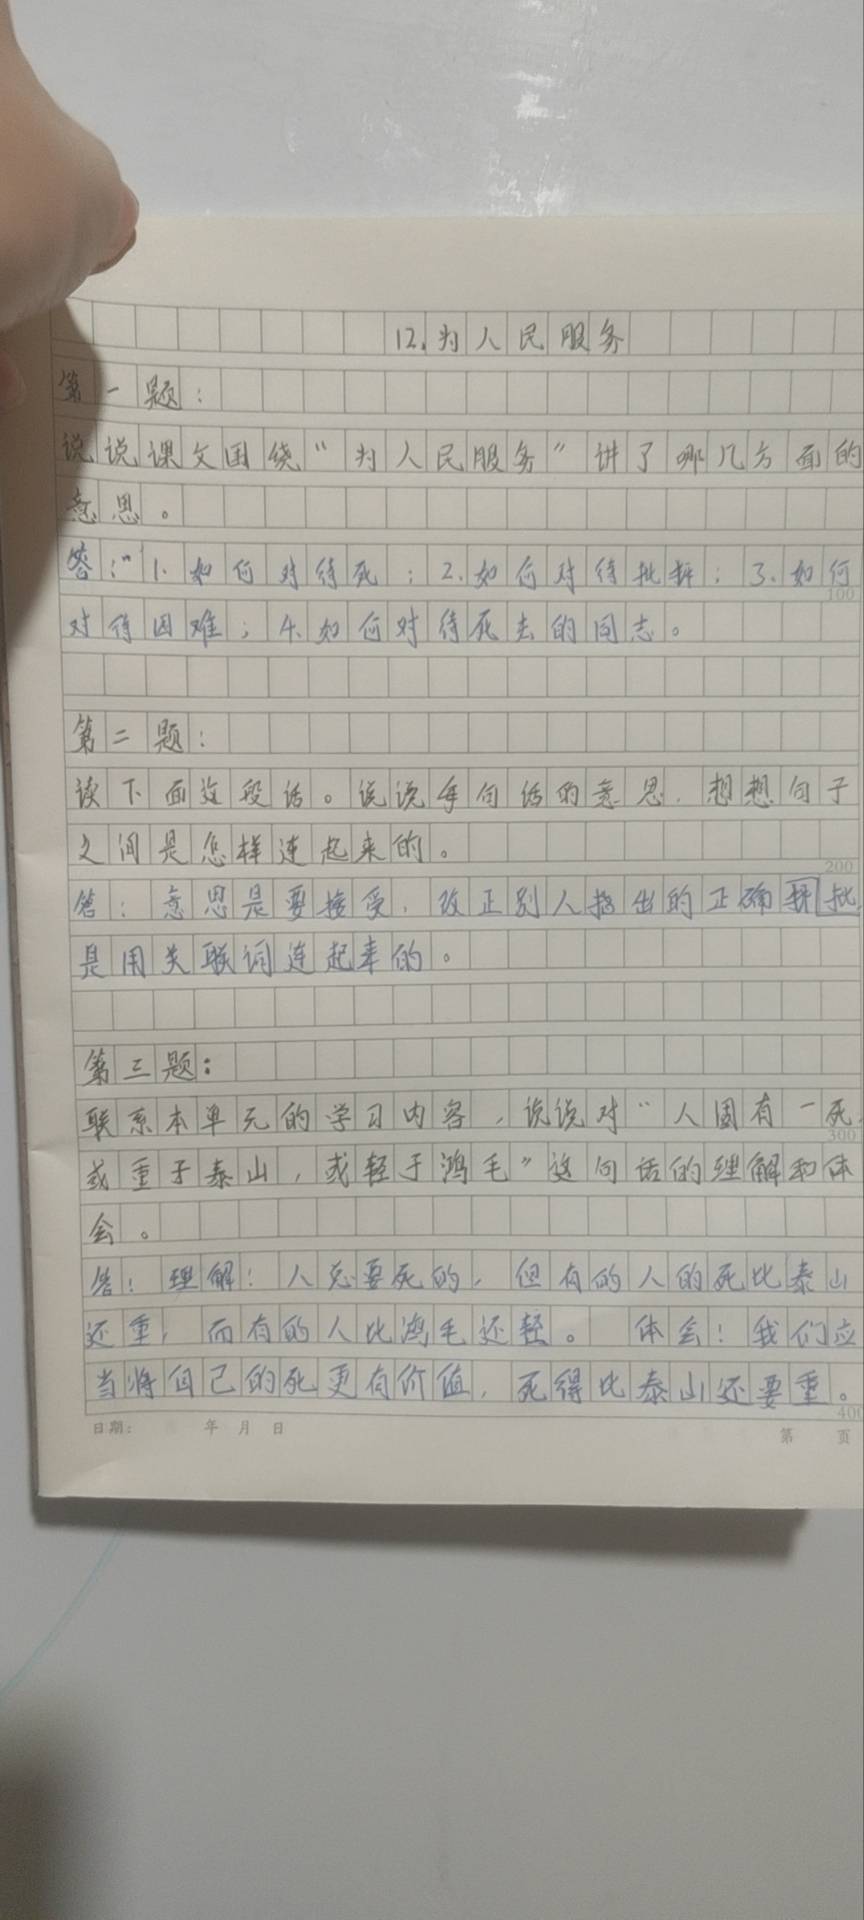 12.为人民服务
第一题：
说说课文围绕“为人民服务”讲了哪几方面的
意思。
答：“1.如何对待死；2.如何对待批评；3.如何
100
对待困难；4.如何对待死去的同志。
第二题：
读下面这段话。说说每句话的意思，想想句子
之间是怎样连起来的。
200
答：意思是要接受，改正别人指出的正确评批，
是用关联词连起来的。
第三题：
联系本单元的学习内容，说说对“人固有一死，
300
或重于泰山，或轻于鸿毛”这句话的理解和体
会。
答：理解：人总要死的，但有的人的死比泰山
还重，而有的人比鸿毛还轻。 体会：我们应
当将自己的死更有价值，死得比泰山还要重。
400
日期： 年 月 日 第 页